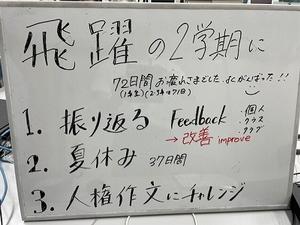 飛躍の2学期に
72日間お疲れさまでした。よくがんばった!!
(1年生)(2・3年は71日)
1. 振り返る Feedback ・個人
・クラス
・クラブ
→ 改善 improve
2. 夏休み 37日間
3. 人権作文にチャレンジ